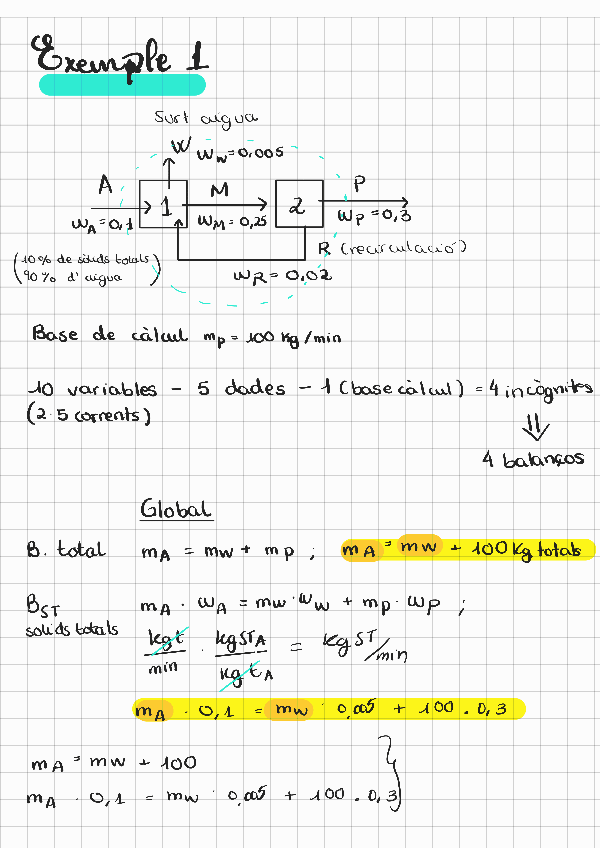 Exemple 1
Surt aigua
W ω_W = 0,005
A 1 M 2 P
ω_A = 0,1 ω_M = 0,25 ω_P = 0,3
R (recirculació)
(10% de sòlids totals
90% d'aigua)
ω_R = 0,02
Base de càlcul m_P = 100 kg/min
10 variables - 5 dades - 1 (base càlcul) = 4 incògnites
(2·5 corrents)
⇓
4 balanços
Global
B. total m_A = m_W + m_P ; m_A = m_W + 100 Kg totals
B_ST m_A · ω_A = m_W · ω_W + m_P · ω_P ;
sòlids totals
kg t/min · kg ST_A/kg t_A = kg ST/min
m_A · 0,1 = m_W · 0,005 + 100 . 0,3
m_A = m_W + 100
m_A · 0,1 = m_W · 0,005 + 100 . 0,3 }